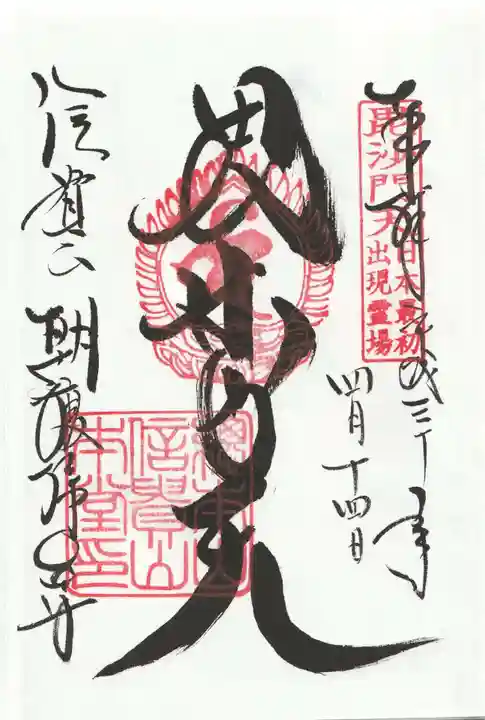 奉拝 平成三十年
四月十四日
毘沙門天
日本最初
出現霊場
毘沙門天
信貴山 朝護孫子寺
總本山
信貴山
本堂印